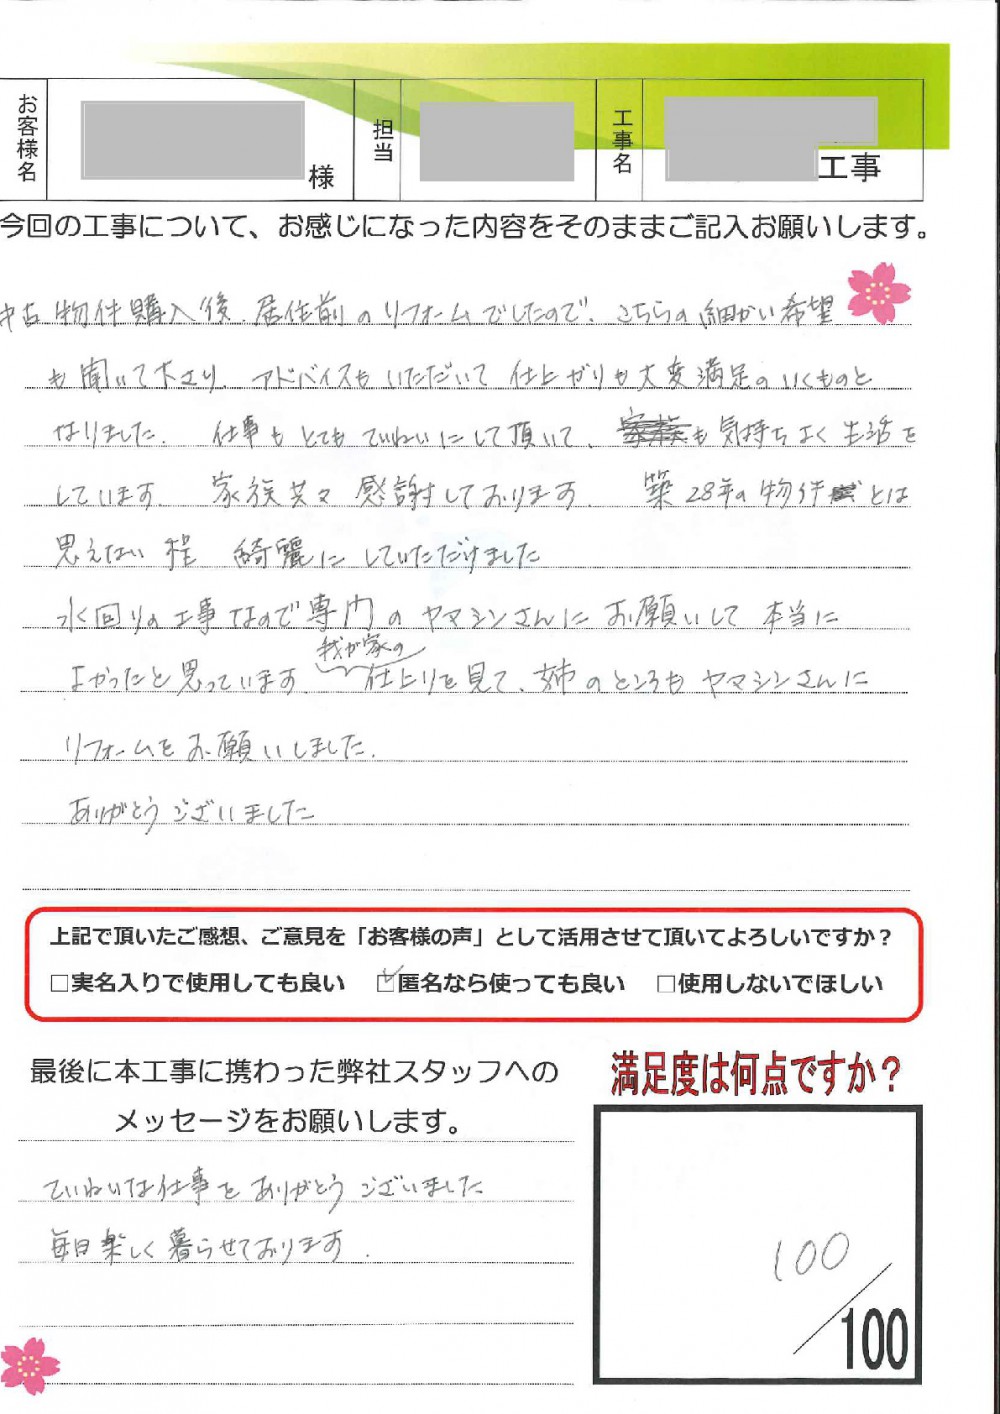 お客様名
様
担当
工事名
工事
今回の工事について、お感じになった内容をそのままご記入お願いします。
中古物件購入後、居住前のリフォームでしたので、こちらの細かい希望
も聞いて下さり、アドバイスもいただいて仕上がりも大変満足のいくものと
なりました。仕事もとてもていねいにして頂いて、家族も気持ちよく生活を
しています。家族共々感謝しております。築28年の物件とは
思えない程綺麗にしていただけました
水回りの工事なので専門のヤマシンさんにお願いして本当に
我が家の
よかったと思っています。仕上りを見て、姉のところもヤマシンさんに
リフォームをお願いしました。
ありがとうございました
上記で頂いたご感想、ご意見を「お客様の声」として活用させて頂いてよろしいですか？
□実名入りで使用しても良い ☑匿名なら使っても良い □使用しないでほしい
最後に本工事に携わった弊社スタッフへの
メッセージをお願いします。
ていねいな仕事をありがとうございました
毎日楽しく暮らせております。
満足度は何点ですか？
100
/100